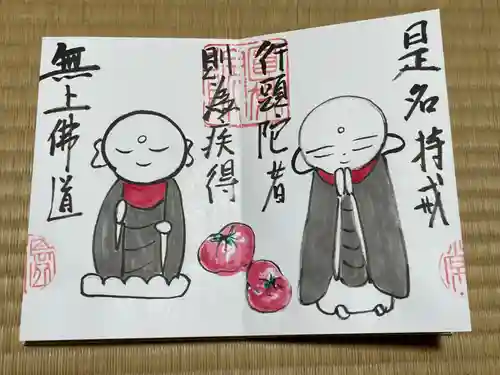 是名持戒
行頭陀者
則為疾得
無上佛道